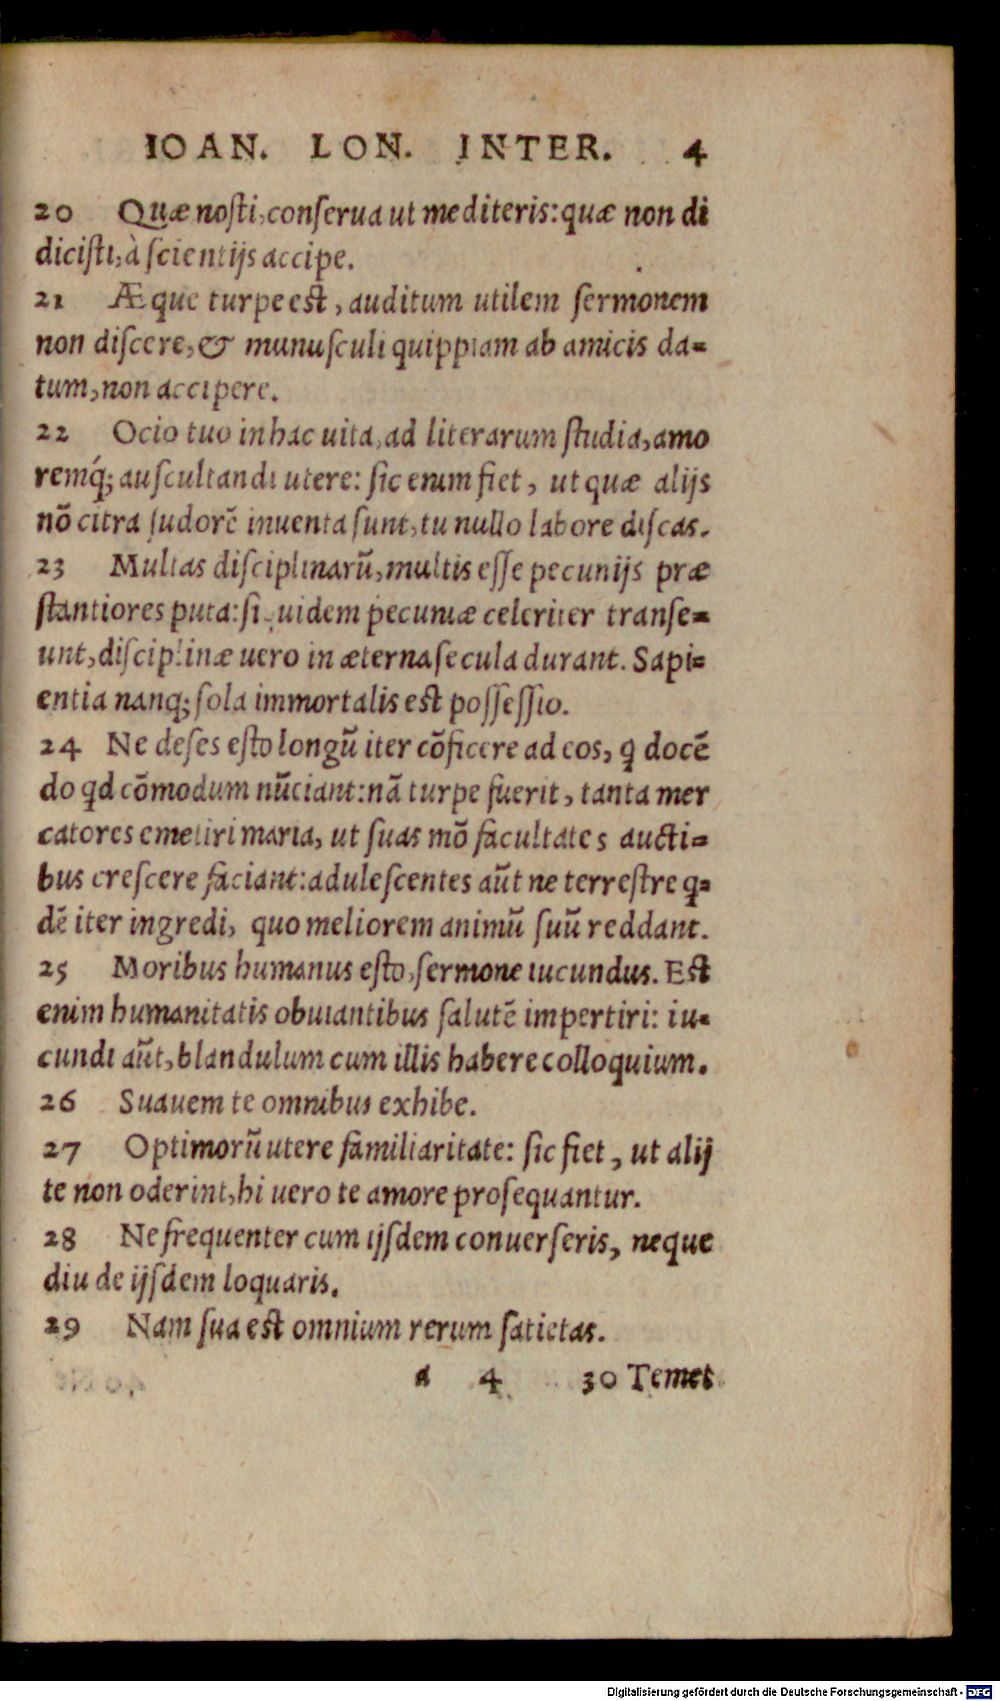 IOAN. LON. INTER. 4
20 Quæ noſti, conſerua ut mediteris: quæ non di
diciſti, à ſcientijs accipe.
21 Æque turpe eſt, auditum utilem ſermonem
non diſcere, & munuſculi quippiam ab amicis da=
tum, non accipere.
22 Ocio tuo in hac uita, ad literarum ſtudia, amo
remq́; auſcultandi utere: ſic enim fiet, ut quæ alijs
nō citra ſudorē inuenta ſunt, tu nullo labore diſcas.
23 Multas diſciplinarū, multis eſſe pecunijs præ
ſtantiores puta: ſiquidem pecuniæ celeriter tranſe=
unt, diſciplinæ uero in æterna ſecula durant. Sapi=
entia nanq; ſola immortalis eſt poſſeſſio.
24 Ne deſes eſto longū iter cōficere ad eos, q̃ docē
do qd cōmodum nūciant: nā turpe fuerit, tanta mer
catores emetiri maria, ut ſuas mō facultates aucti=
bus creſcere faciant: aduleſcentes aūt ne terreſtre q=
dē iter ingredi, quo meliorem animū ſuū reddant.
25 Moribus humanus eſto, ſermone iucundus. Eſt
enim humanitatis obuiantibus ſalutē impertiri: iu=
cundi aūt, blandulum cum illis habere colloquium.
26 Suauem te omnibus exhibe.
27 Optimorū utere familiaritate: ſic fiet, ut alij
te non oderint, hi uero te amore proſequantur.
28 Ne frequenter cum ijſdem conuerſeris, neque
diu de ijſdem loquaris.
29 Nam ſua eſt omnium rerum ſatietas.
a 4 30 Temet
Digitalisierung gefördert durch die Deutsche Forschungsgemeinschaft - DFG